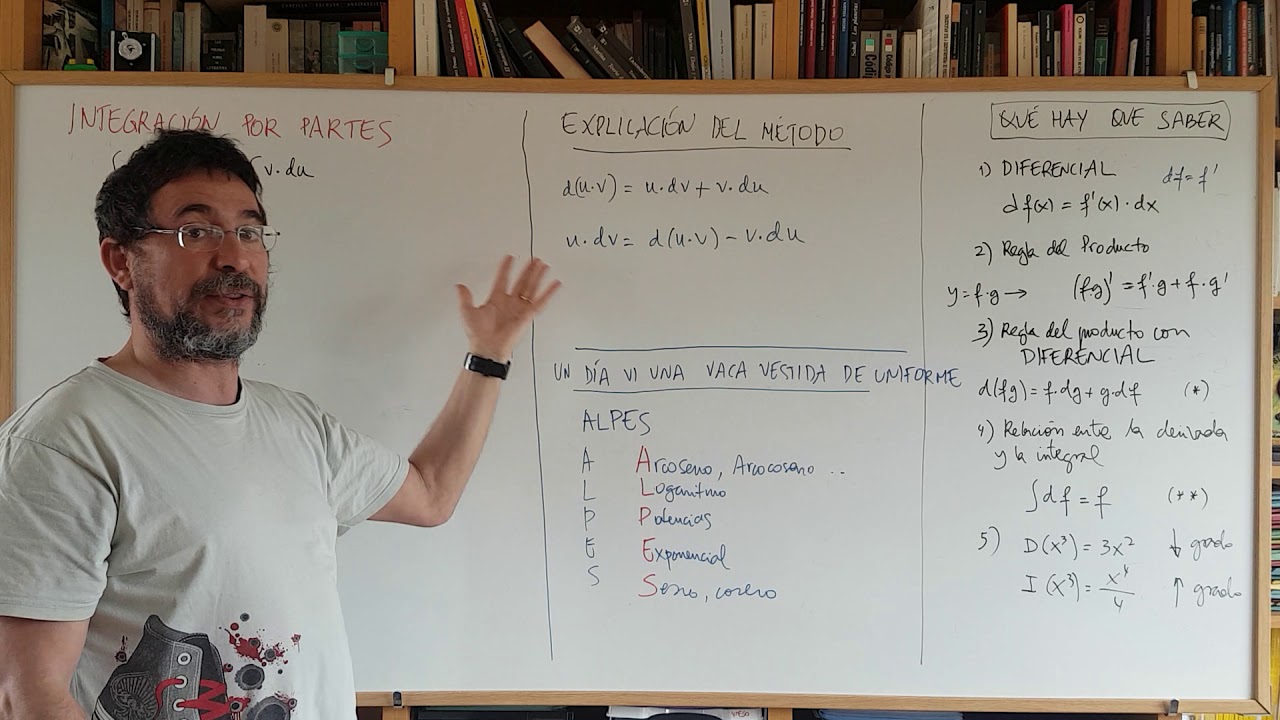 INTEGRACIÓN POR PARTES
∫ v·du
EXPLICACIÓN DEL MÉTODO
d(u·v) = u·dv + v·du
u·dv = d(u·v) - v·du
UN DÍA VI UNA VACA VESTIDA DE UNIFORME
ALPES
A Arcoseno, Arcocoseno ..
L Logaritmo
P Potencias
E Exponencial
S Seno, coseno
QUÉ HAY QUE SABER
1) DIFERENCIAL df = f'
df(x) = f'(x)·dx
2) Regla del Producto
y = f·g → (f·g)' = f'·g + f·g'
3) Regla del producto con
DIFERENCIAL
d(fg) = f·dg + g·df (*)
4) Relación entre la derivada
y la integral
∫df = f (**)
5) D(x³) = 3x² ↓ grado
I(x³) = x⁴/4 ↑ grado